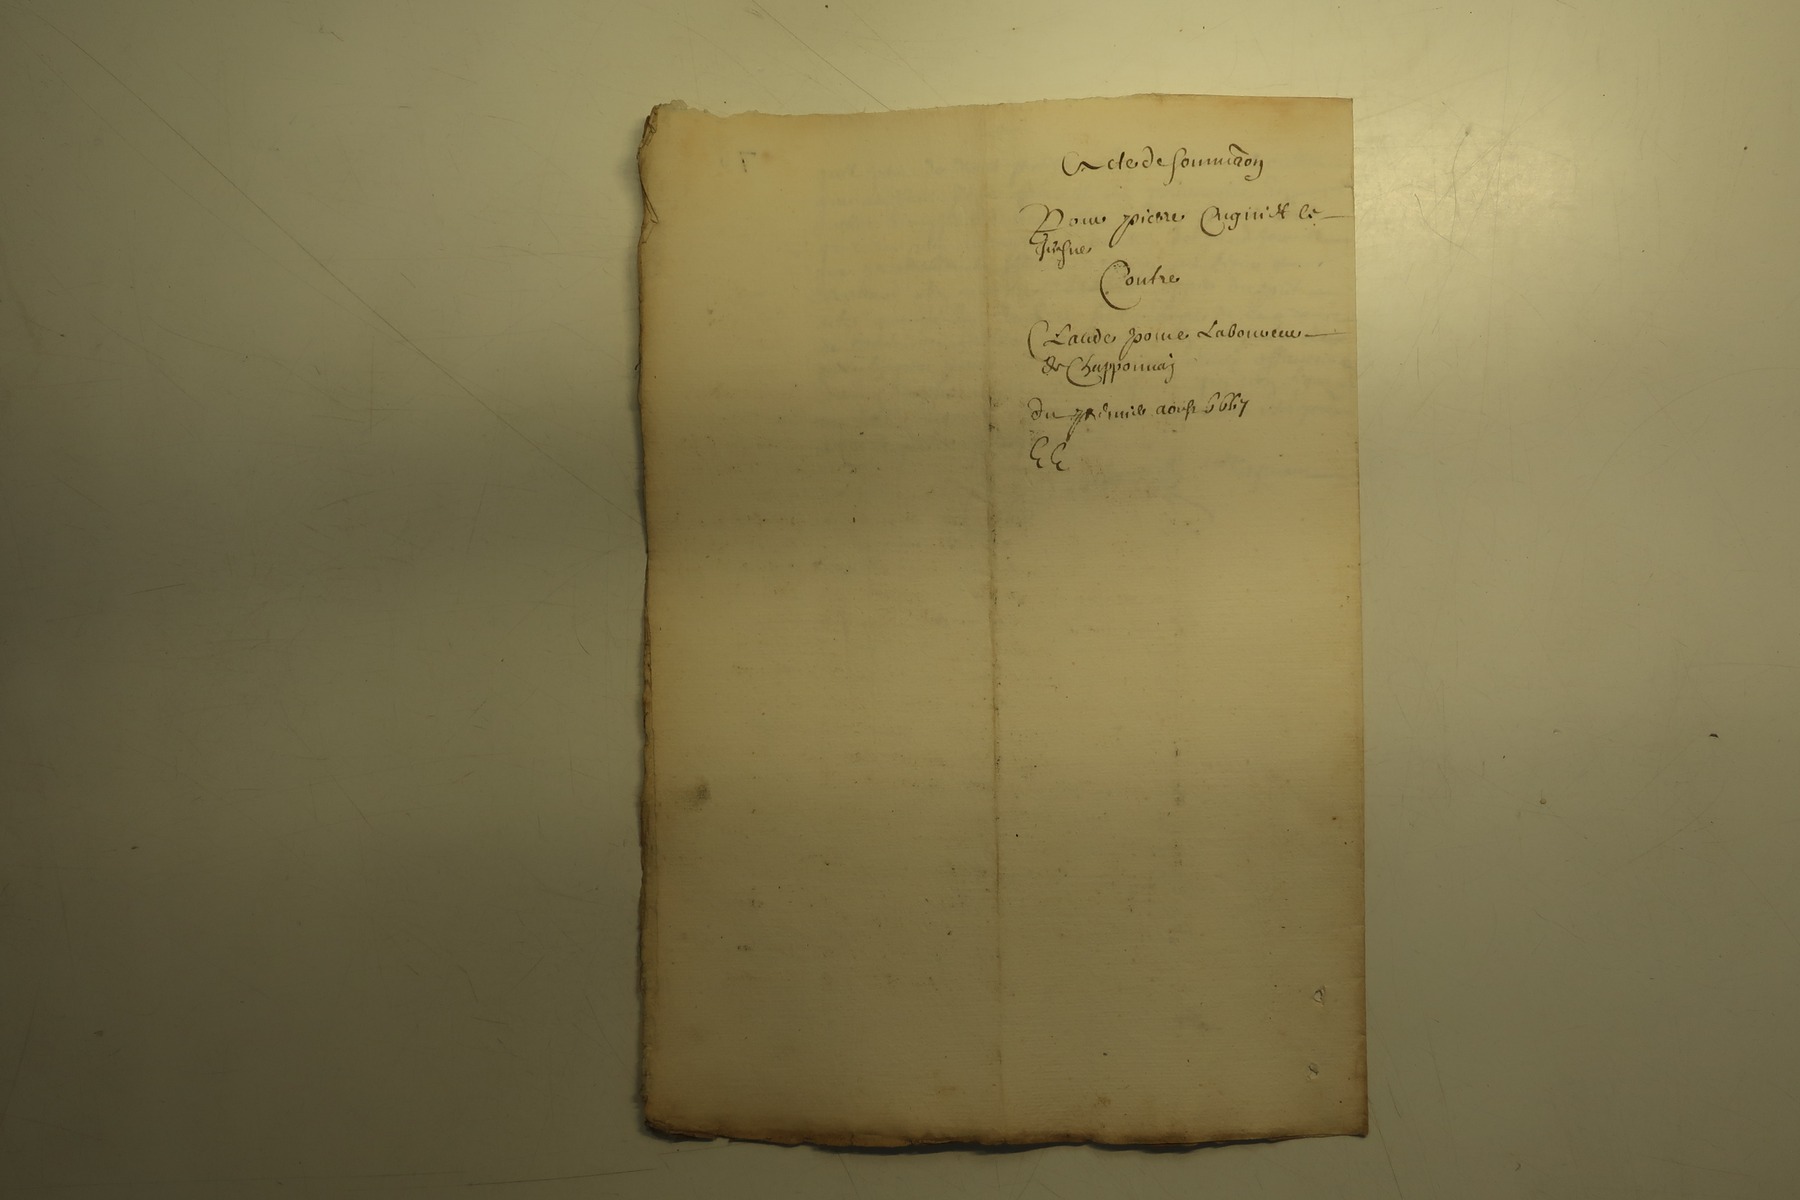 Acte de sommaõn
Pour pierre Cuginet le
jeusne
Contre
Claude pome Laboureur
de Chapponnay
du premier aoust 1667